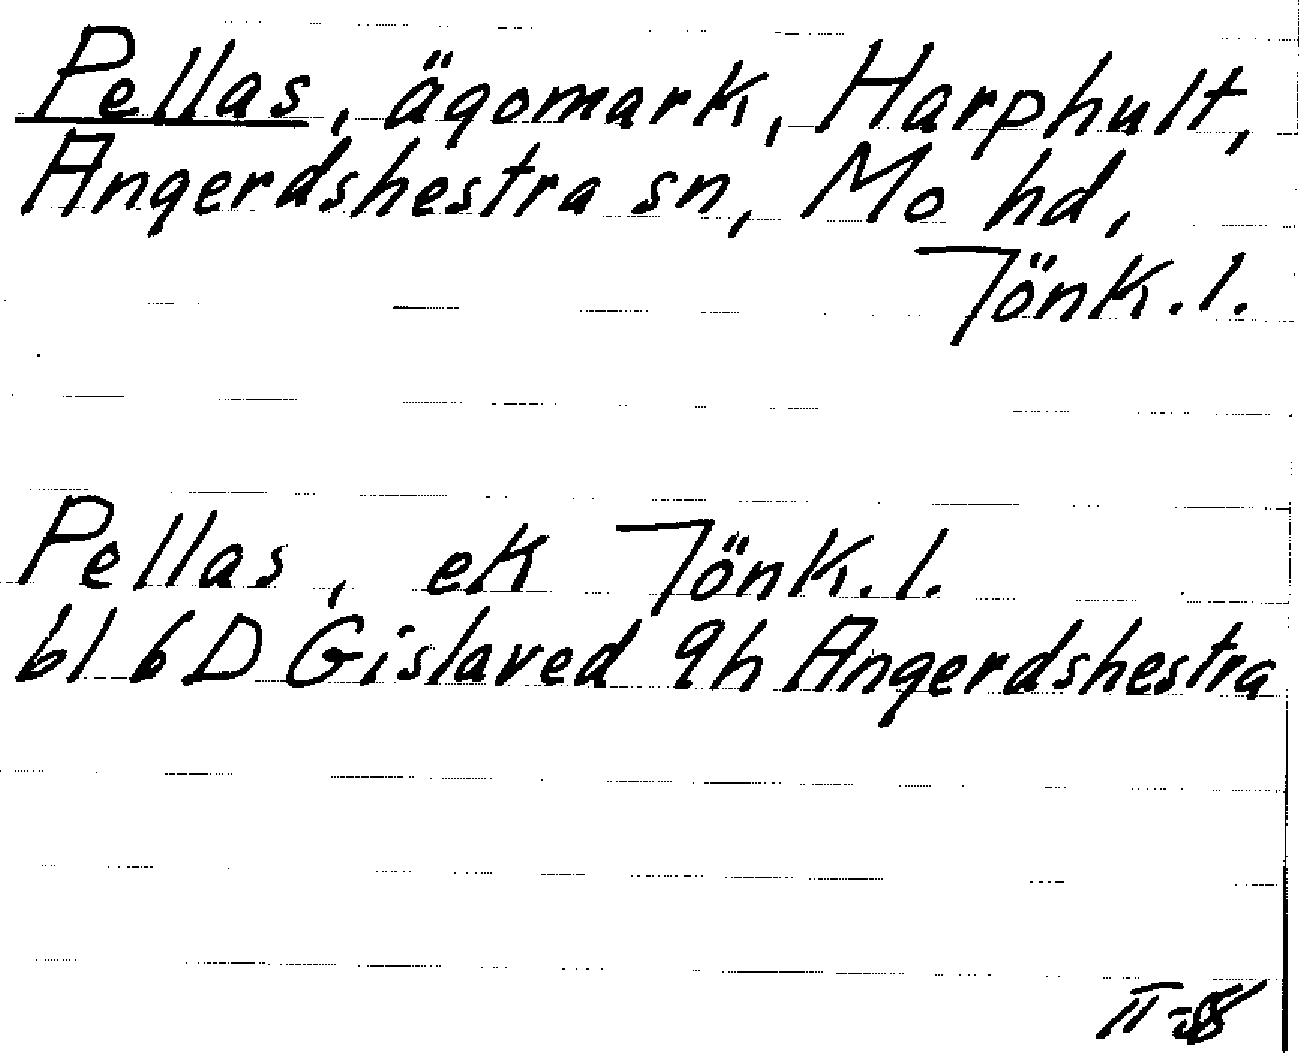 Pellas, ägomark, Harphult,
Angerdshestra sn, Mo hd,
Jönk.l.
Pellas, ek Jönk.l.
bl 6D Gislaved 9h Angerdshestra